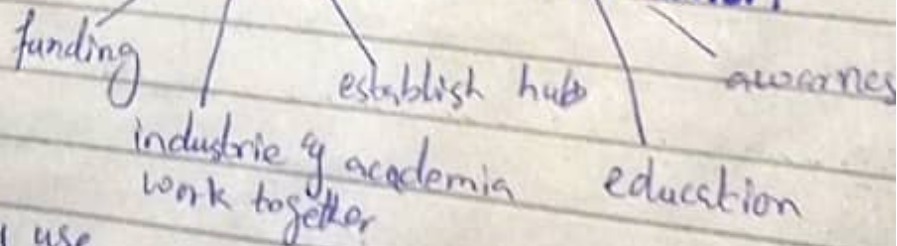 funding
establish hub
awarnes
industrie & academia
work together
education
use